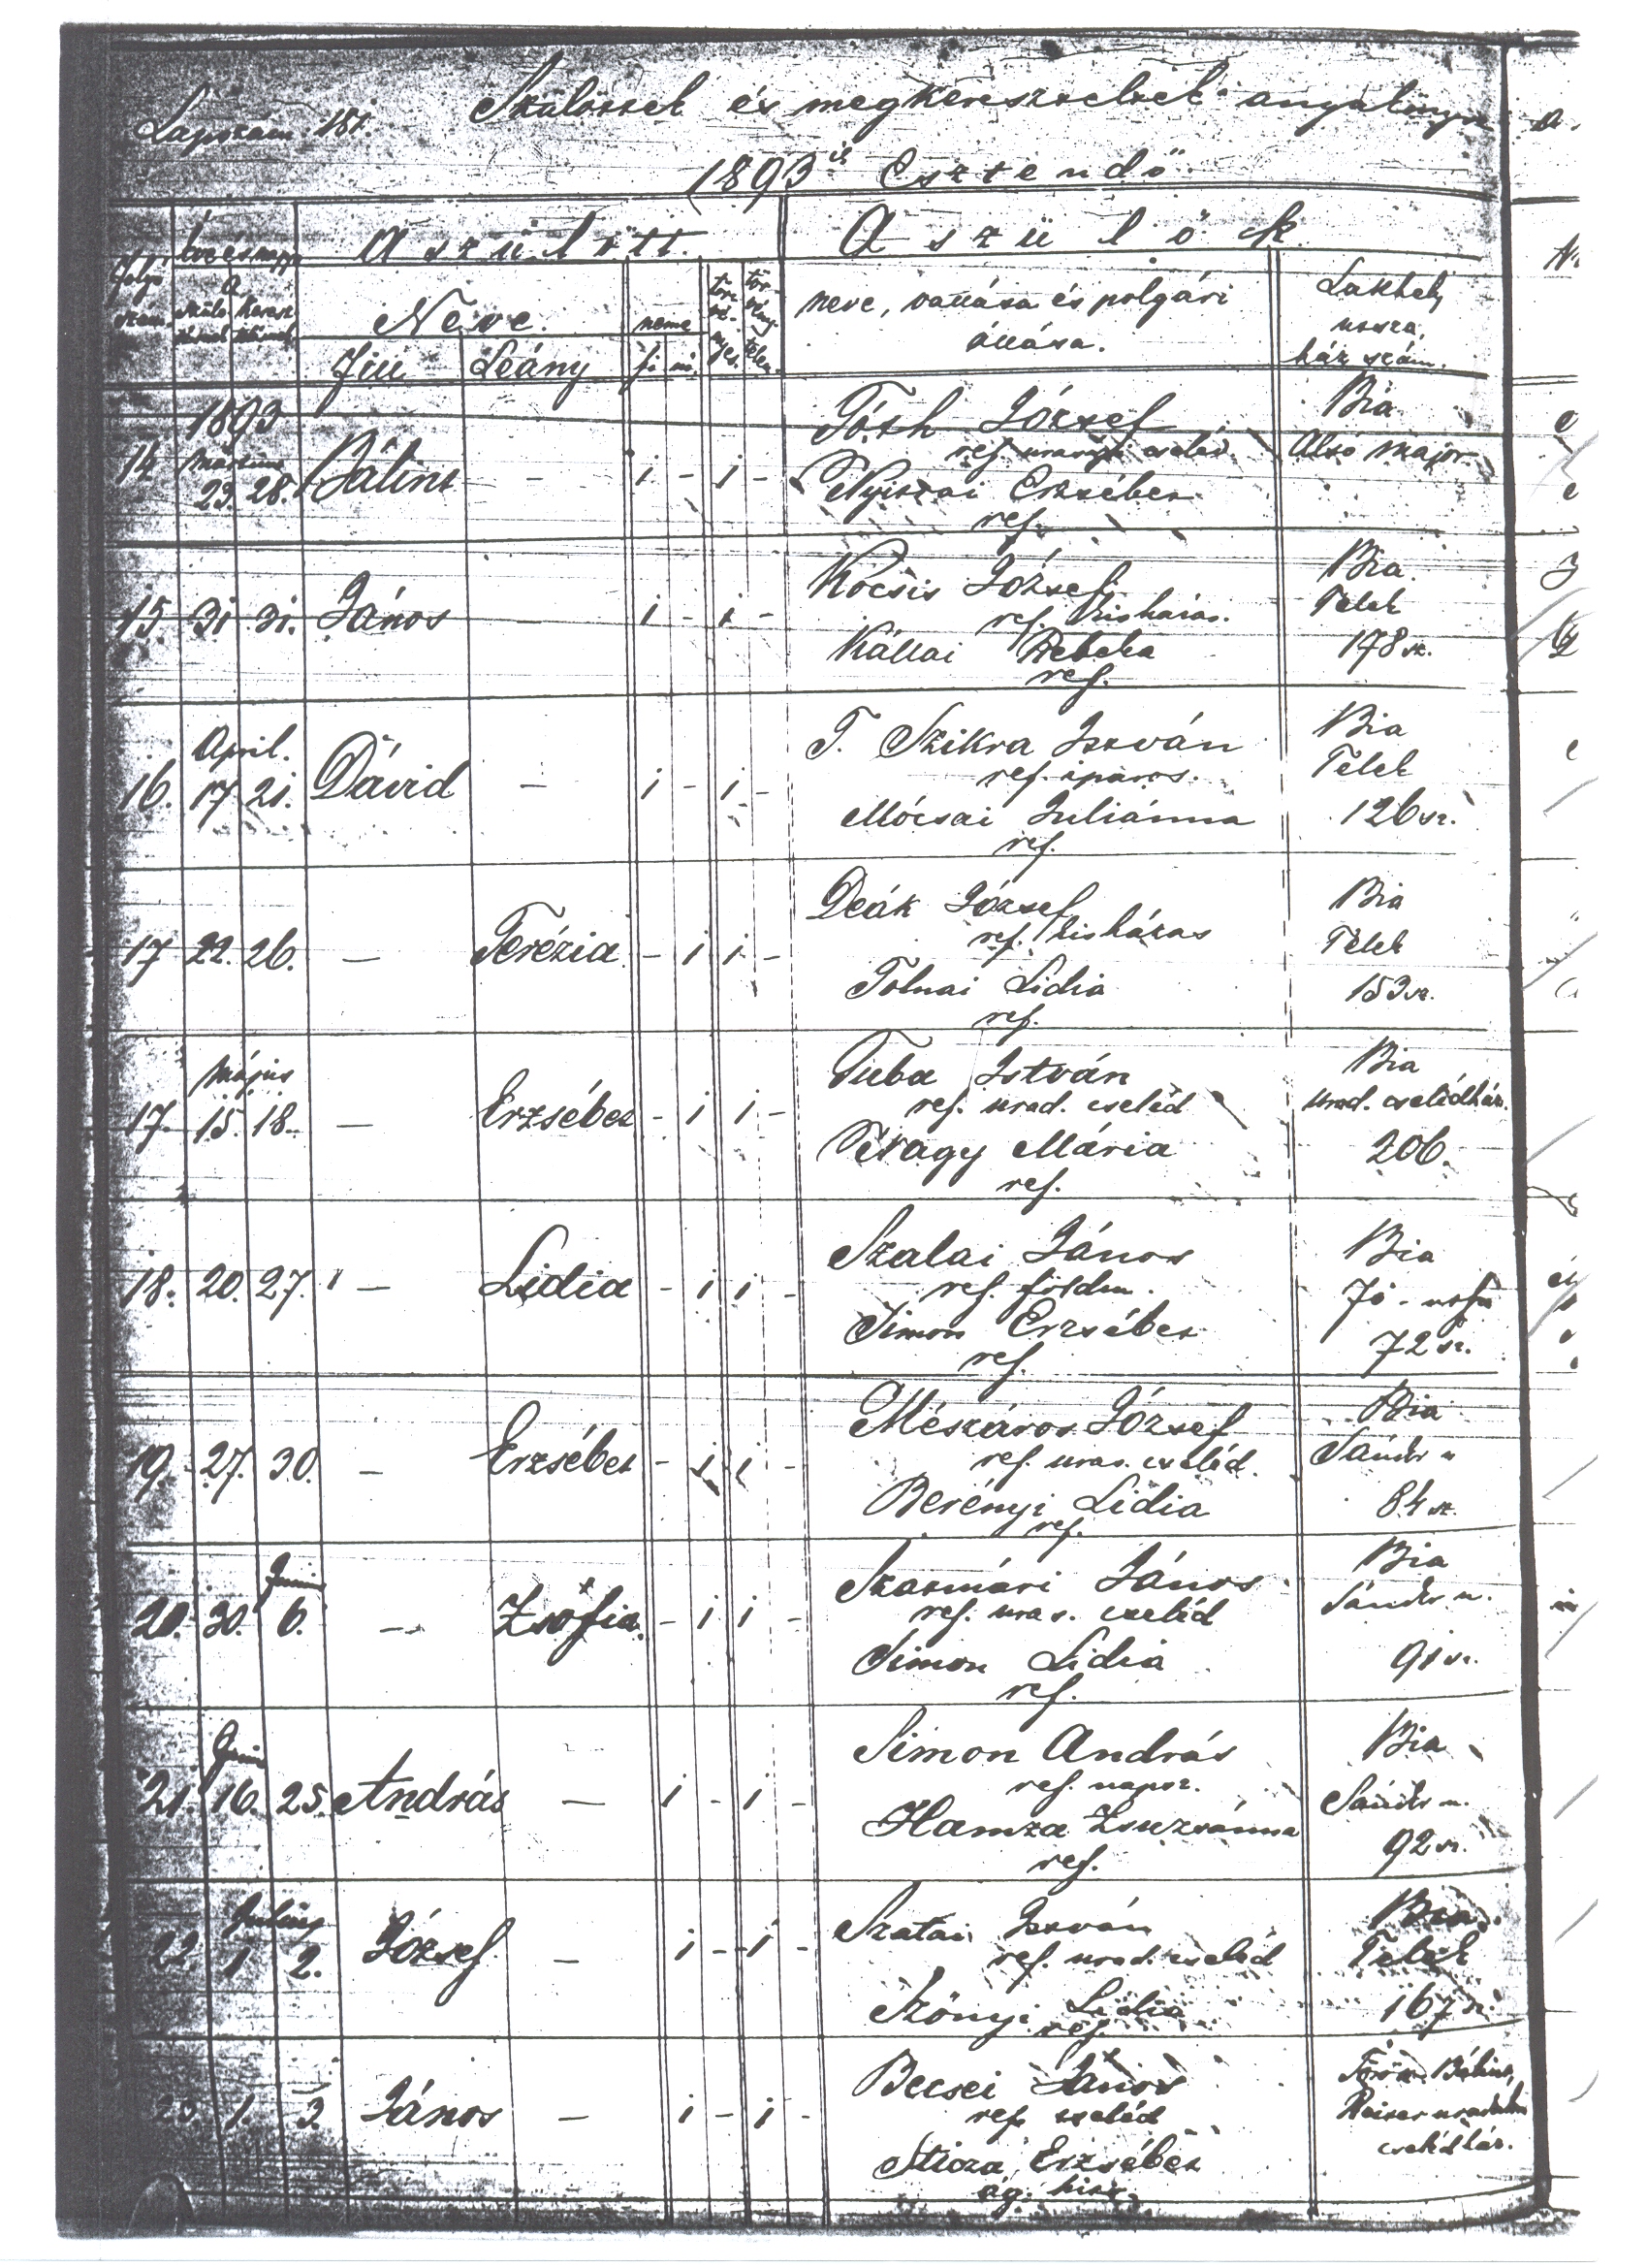 Lapszám 181. Szülöttek és megkereszteltek anyakönyve
1893ik Esztendő
A szülött. A szülők
folyó szám
A születésnek keresztelésnek
Neve. neme törvényes törvénytelen
Fiu Leány fi nő
neve, vallása és polgári állása.
Lakhely, utcza, ház szám.
1893
14 Március 23. 28. Bálint - i - i -
Tóth József
ref. urasági cseléd.
Nyiszai Erzsébet
ref.
Bia
Alsó major
15 31 31. János - i - i -
Kocsis József
ref. kisházas.
Kállai Rebeka
ref.
Bia.
Telek
178 sz.
April.
16. 17 21. Dávid - i - i -
T. Szikra István
ref. iparos.
Mócsai Juliánna
ref.
Bia
Telek
126 sz.
17 22. 26. - Terézia. - i i -
Deák József
ref. kisházas
Tolnai Lidia
ref.
Bia
Telek
153 sz.
Május
17. 15. 18. - Erzsébet - i i -
Tuba István
ref. urad. cseléd
Mária
ref.
Bia
urad. cselédház.
206.
18. 20. 27. - Lidia - i i -
Szalai János
ref. földm.
Simon Erzsébet
ref.
Bia
72 sz.
19. 27. 30. - Erzsébet - i i -
Mészáros József
ref. uras. cseléd.
Berényi Lidia
ref.
Bia
Sándor u
84 sz.
Juni
20. 30. 6. - Zsófia. - i i -
Szatmári János
ref. uras. cseléd
Simon Lidia
ref.
Bia
Sándor u.
91 sz.
Juni
21. 16. 25. András - i - i -
Simon András
ref. napsz.
Hamza Zsuzsánna
ref.
Bia
Sándor u.
92 sz.
Julius
22. 1 2. József - i - i -
Szatai István
ref. urad. cseléd
Szőnyi Lidia
ref.
Bia.
Telek
167 sz.
23. 1. 3. János - i - i -
Becsei János
ref. cseléd
Erzsébet
ág. hitv.
Török Bálint,
cselédház.